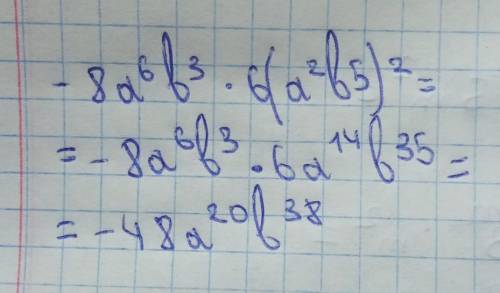 - 8a⁶b³ · 6(a²b⁵)⁷ =
= - 8a⁶b³ · 6a¹⁴b³⁵ =
= - 48a²⁰b³⁸